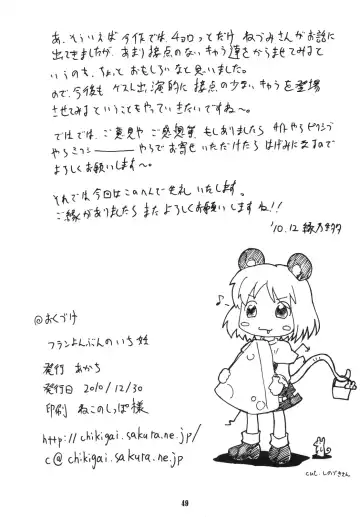 あ、そういえば今作では、4コロってだけ ねづみさんがお話に
出てきましたが、あまり接点のないキャラ達をからませてみると
いうのも、ちょっとおもしろいなと思いました。
ので、今後も ゲスト出演的に 接点の少ないキャラを登場
させてみるということをやっていきたいですね〜。
ではでは、ご意見や ご感想等 もしありましたら サイトやらピクシブ
やらミクシー やらでお寄せ いただけたら はげみになりますので
よろしくお願いします〜。
それでは今回はこのへんで失礼 いたします。
ご縁がありましたら また よろしくお願い しますね!!
'10.12
@おくづけ
フランよんぶんのいち姓
発行 あかち
発行日 2010/12/30
印刷 ねこのしっぽ様
http://chikigai.sakura.ne.jp/
c@chikigai.sakura.ne.jp
cut.しのづきさん
49